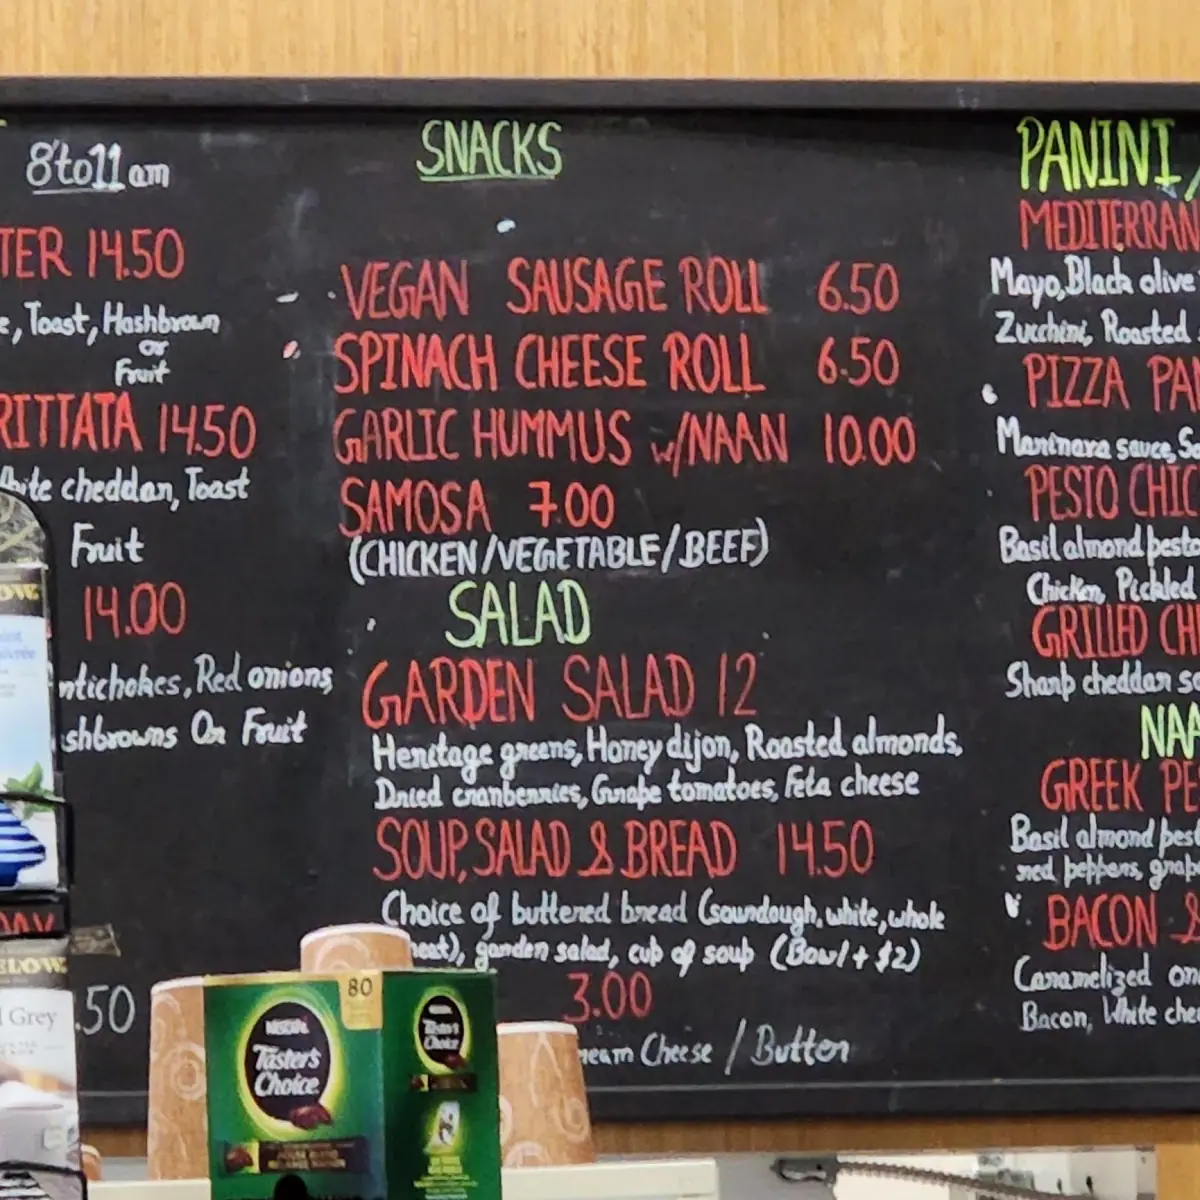 8to11 am
14.50
Toast, Hashbrown
or
Fruit
14.50
cheddar, Toast
Fruit
14.00
Red onions,
Or Fruit
SNACKS
VEGAN SAUSAGE ROLL 6.50
SPINACH CHEESE ROLL 6.50
GARLIC HUMMUS w/NAAN 10.00
SAMOSA 7.00
(CHICKEN/VEGETABLE/BEEF)
SALAD
GARDEN SALAD 12
Heritage greens, Honey dijon, Roasted almonds,
Dried cranberries, Grape tomatoes, Feta cheese
SOUP, SALAD & BREAD 14.50
Choice of buttered bread (sourdough, white, whole
garden salad, cup of soup (Bowl + $2)
3.00
Cheese / Butter
PANINI/
Mayo, Black olive
Zucchini, Roasted
PIZZA
Marinara sauce,
PESTO
Basil almond
Chicken, Pickled
GRILLED
Sharp cheddar
GREEK
Basil almond
red peppers,
BACON &
Caramelized
Bacon, White
Grey
80
NESCAFÉ
Taster's
Choice
Taster's
Choice